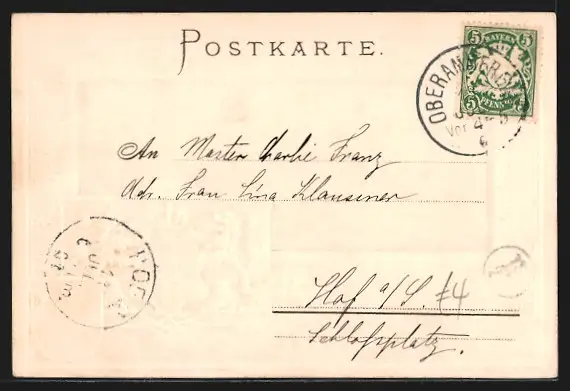 POSTKARTE.
5 BAYERN 5
5 PFENNIG 5
OBERAMMERG
Vor 4
An Master Charlie Franz
Adr. Frau Lina Klausener
HOF
Hof a/S. 4
Schloßplatz.